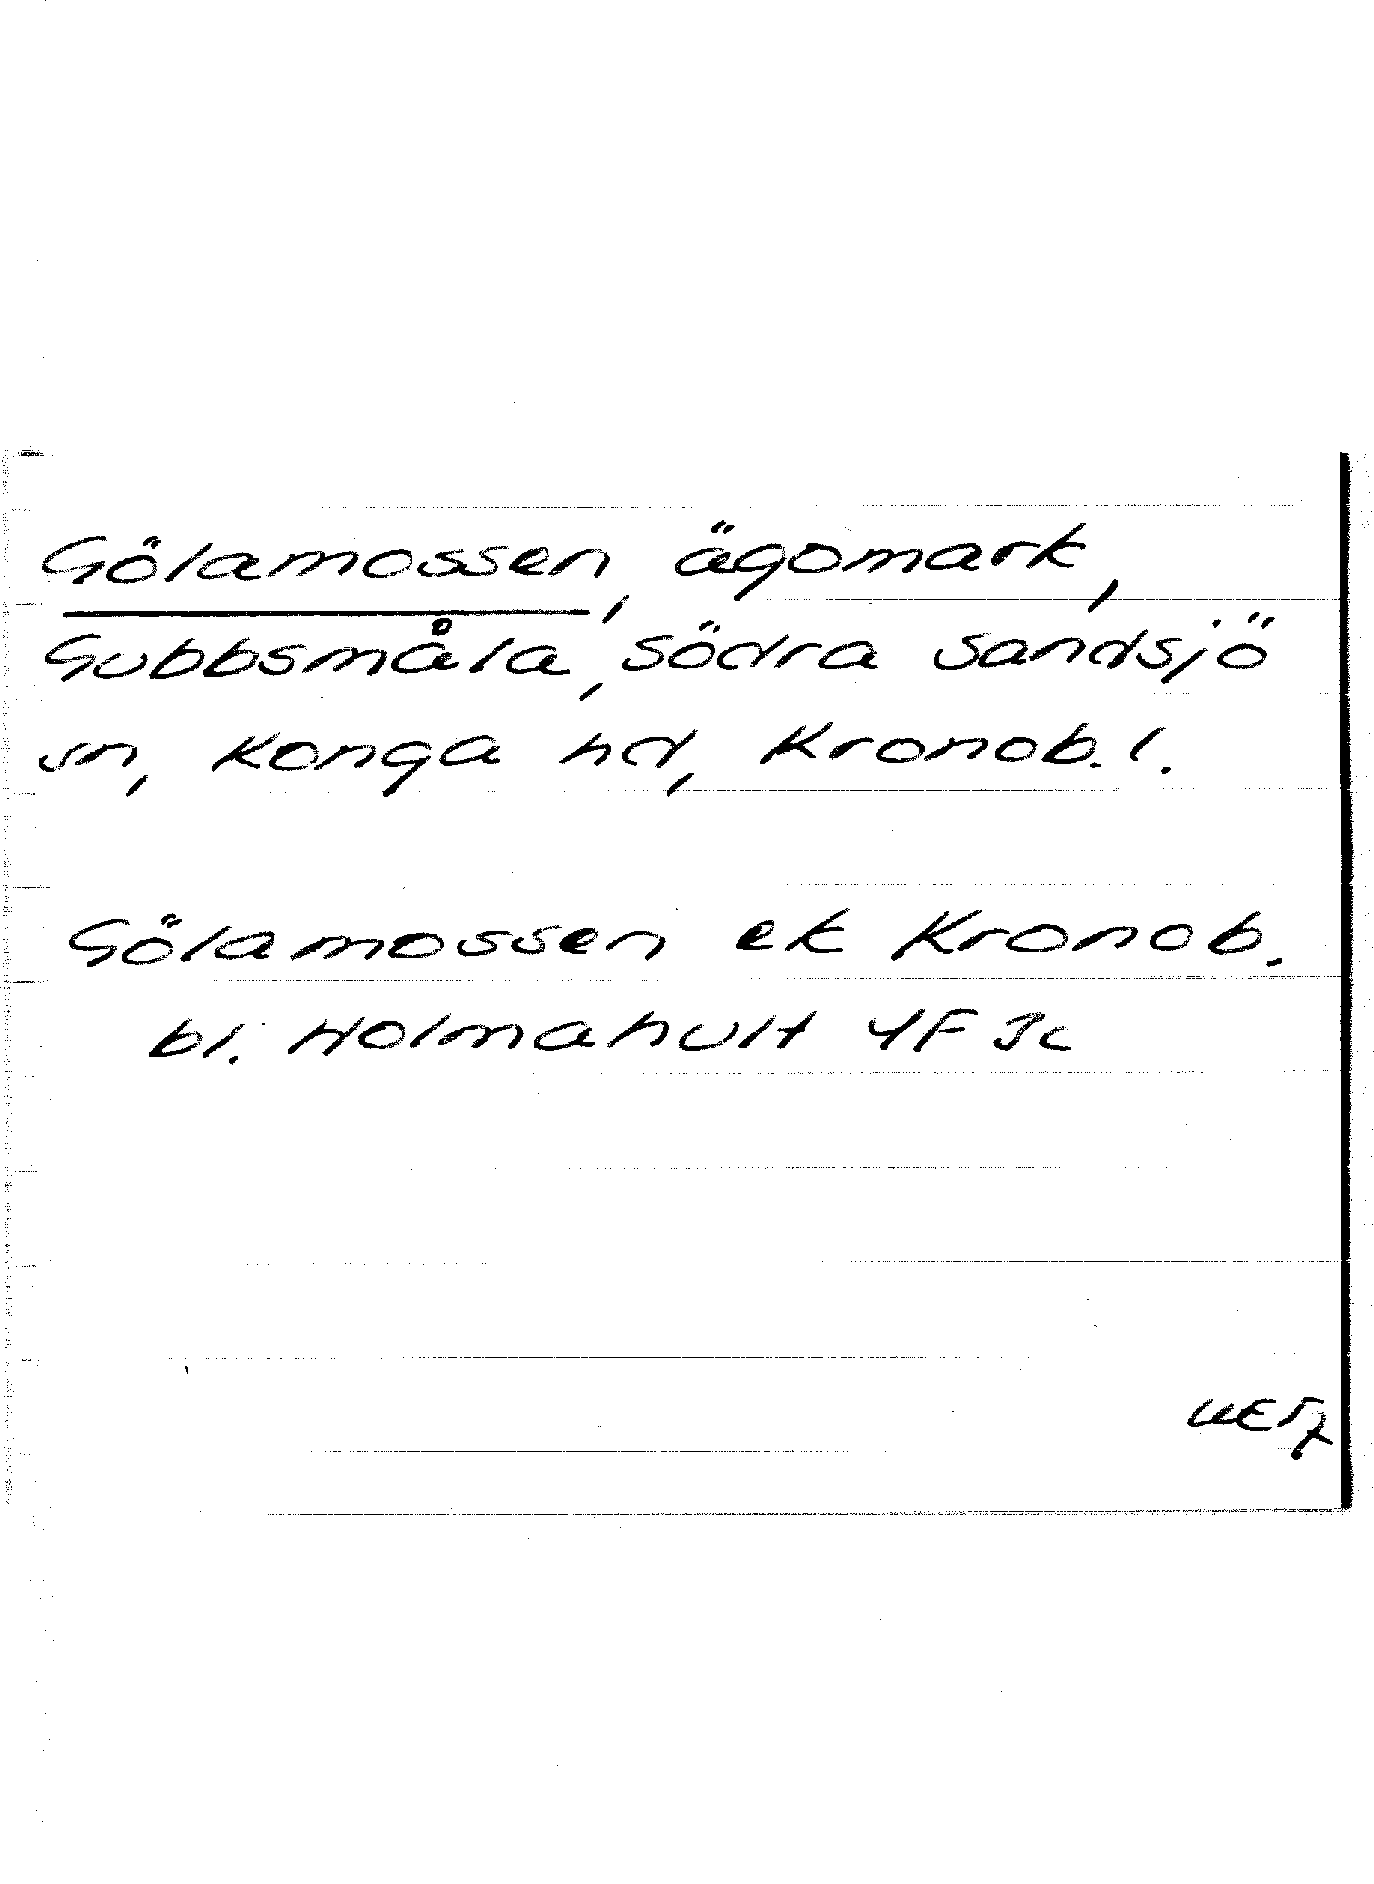 Gölamossen, ägomark,
Gubbsmåla, Södra Sandsjö
sn, Konga hd, Kronob. l.
Gölamossen ek Kronob.
bl. Holmahult 4F Jc